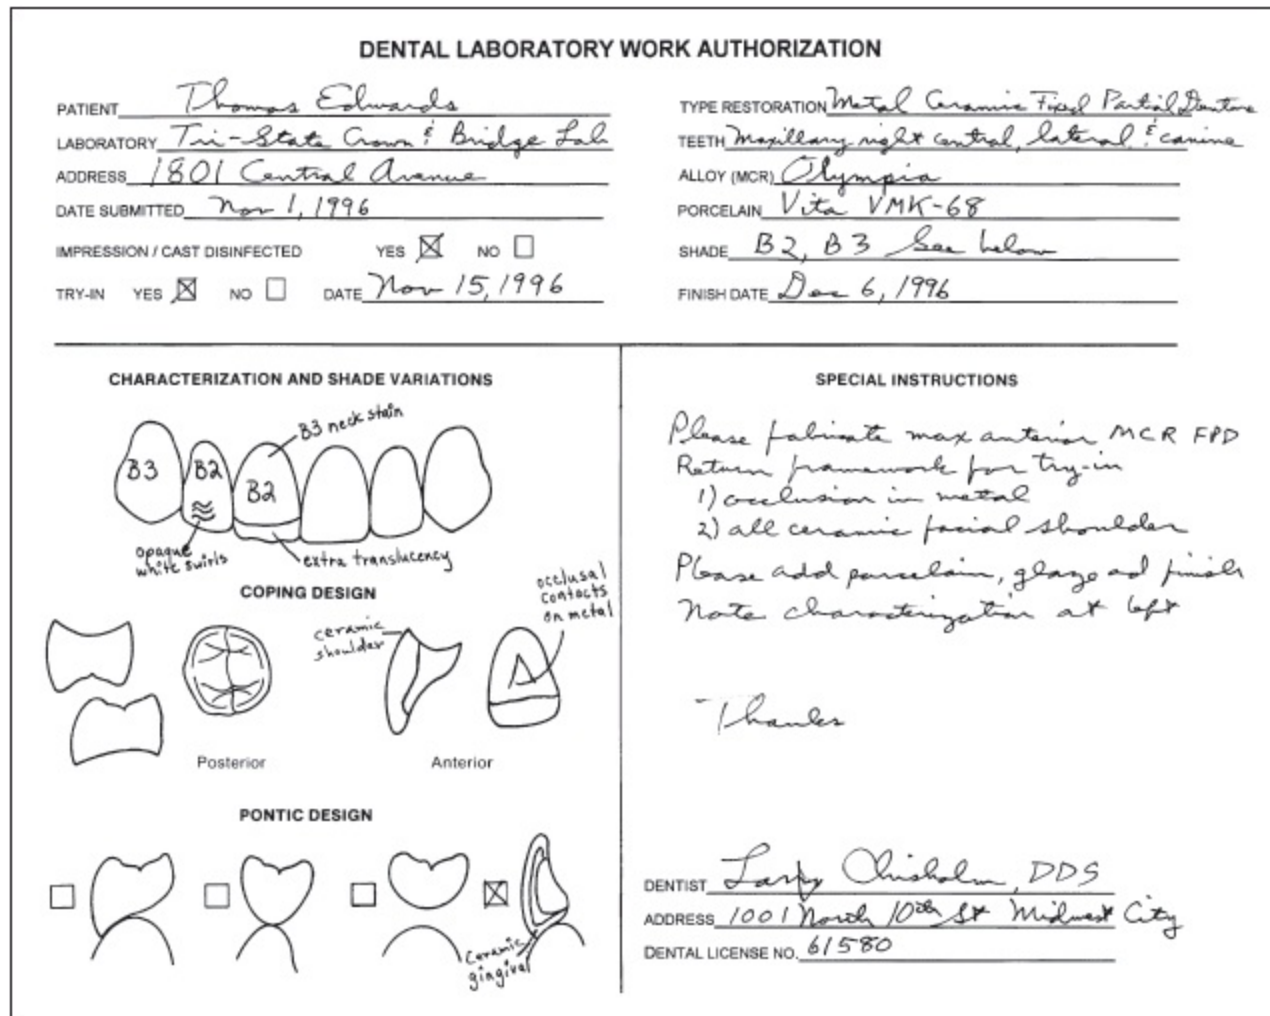 DENTAL LABORATORY WORK AUTHORIZATION
PATIENT Thomas Edwards
LABORATORY Tri-State Crown & Bridge Lab
ADDRESS 1801 Central Avenue
DATE SUBMITTED Nov 1, 1996
IMPRESSION / CAST DISINFECTED YES NO
TRY-IN YES NO DATE Nov 15, 1996
TYPE RESTORATION Metal Ceramic Fixed Partial Denture
TEETH Maxillary right central, lateral, & canine
ALLOY (MCR) Olympia
PORCELAIN Vita VMK-68
SHADE B2, B3 See below
FINISH DATE Dec 6, 1996
CHARACTERIZATION AND SHADE VARIATIONS
B3 neck stain
B3 B2 B2
opaque
white swirls
extra translucency
COPING DESIGN
ceramic
shoulder
occlusal
contacts
on metal
Posterior Anterior
PONTIC DESIGN
Ceramic
gingival
SPECIAL INSTRUCTIONS
Please fabricate max anterior MCR FPD
Return framework for try-in
1) occlusion in metal
2) all ceramic facial shoulder
Please add porcelain, glaze ad finish
Note characterization at left
Thanks
DENTIST Larry Chisholm, DDS
ADDRESS 1001 North 10th St Midwest City
DENTAL LICENSE NO. 61580